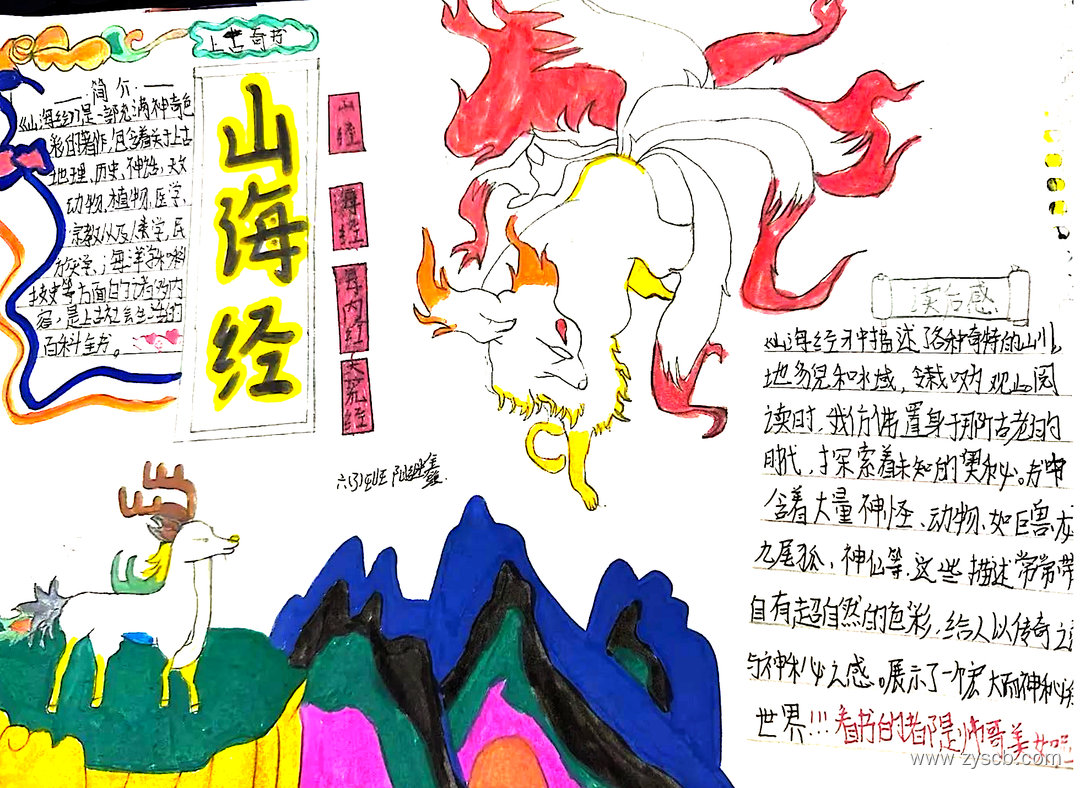 上古奇书
简介
《山海经》是一部充满神奇色
彩的著作,包含着关于上古
地理、历史、神话、天文
动物、植物、医学、
宗教以及人类学、民
族学、海洋学和科
技史等方面的诸多内
容,是上古社会生活的
百科全书。
山海经
山经
海经
海内经
大荒经
六(3)班
读后感
《山海经》中描述各种奇特的山川、
地貌和水域,令我叹为观止。阅
读时,我仿佛置身于那个古老的
时代,探索着未知的奥秘。书中
含着大量神怪、动物、如巨兽龙
九尾狐、神仙等.这些描述常常带
自有超自然的色彩,给人以传奇之
与神秘之感。展示了一个宏大而神秘的
世界!!!看书的都是帅哥美女呢
www.zyscb.com